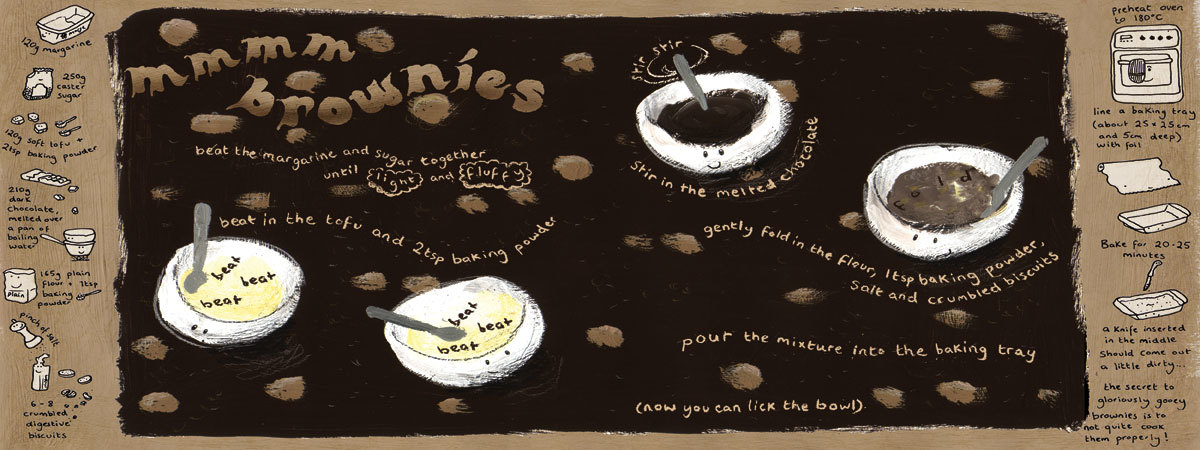 120g margarine
250g
caster
sugar
120g soft tofu +
2tsp baking powder
210g
dark
chocolate,
melted over
a pan of
boiling
water
165g plain
flour + 1tsp
baking
powder
plain
pinch of salt
6-8
crumbled
digestive
biscuits
mmmm
brownies
beat the margarine and sugar together
until light and fluffy
beat in the tofu and 2tsp baking powder
beat
beat
beat
beat
beat
beat
stir stir
stir in the melted chocolate
fold
gently fold in the flour, 1tsp baking powder,
salt and crumbled biscuits
pour the mixture into the baking tray
(now you can lick the bowl).
preheat oven
to 180°C
line a baking tray
(about 25 x 25cm
and 5cm deep)
with foil
Bake for 20-25
minutes
a knife inserted
in the middle
should come out
a little dirty...
the secret to
gloriously gooey
brownies is to
not quite cook
them properly!